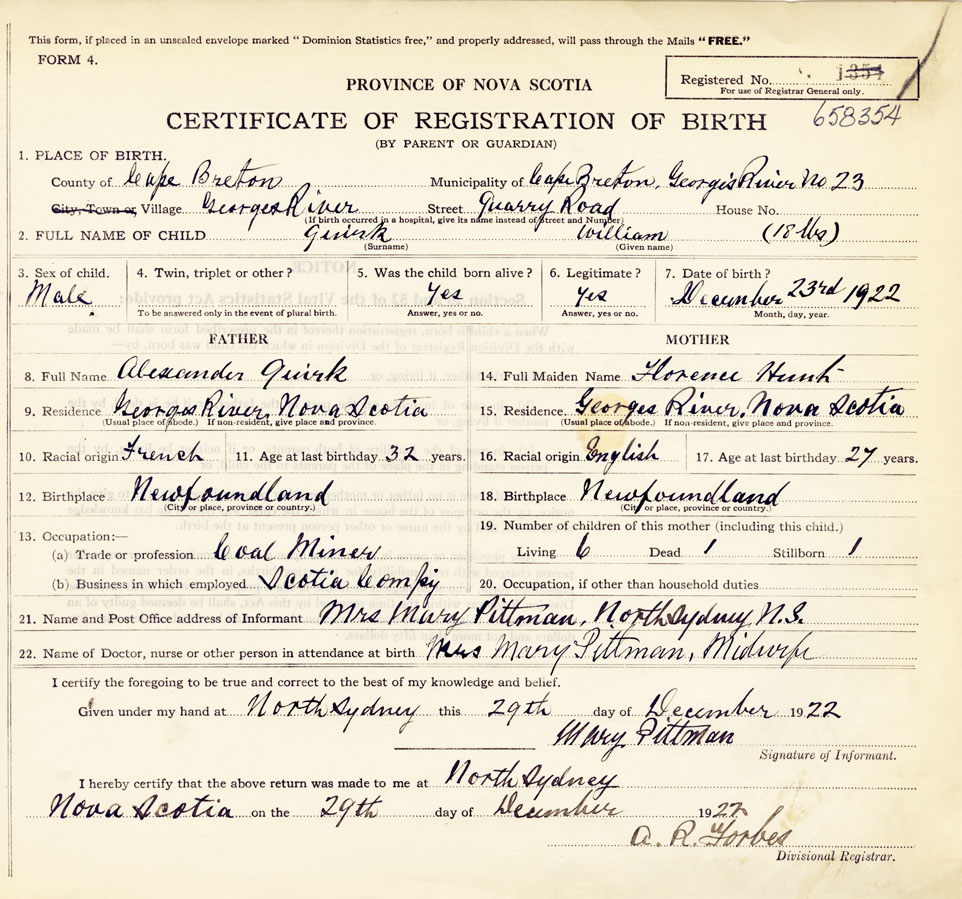 This form, if placed in an unsealed envelope marked "Dominion Statistics free," and properly addressed, will pass through the Mails "FREE."
FORM 4.
PROVINCE OF NOVA SCOTIA
Registered No. 1354
For use of Registrar General only.
658354
CERTIFICATE OF REGISTRATION OF BIRTH
(BY PARENT OR GUARDIAN)
1. PLACE OF BIRTH.
County of Cape Breton Municipality of Cape Breton, Georges River No 23
City, Town or Village Georges River Street Quarry Road House No.
(If birth occurred in a hospital, give its name instead of Street and Number)
2. FULL NAME OF CHILD Quirk William (18 lbs)
(Surname) (Given name)
3. Sex of child. 4. Twin, triplet or other? 5. Was the child born alive? 6. Legitimate? 7. Date of birth?
Male Yes Yes December 23rd 1922
To be answered only in the event of plural birth. Answer, yes or no. Answer, yes or no. Month, day, year.
FATHER MOTHER
8. Full Name Alexander Quirk 14. Full Maiden Name Florence Hunt
9. Residence Georges River, Nova Scotia 15. Residence Georges River, Nova Scotia
(Usual place of abode.) If non-resident, give place and province. (Usual place of abode.) If non-resident, give place and province.
10. Racial origin French 11. Age at last birthday 32 years. 16. Racial origin English 17. Age at last birthday 27 years.
12. Birthplace Newfoundland 18. Birthplace Newfoundland
(City or place, province or country.) (City or place, province or country.)
13. Occupation:— 19. Number of children of this mother (including this child.)
(a) Trade or profession Coal Miner Living 6 Dead 1 Stillborn 1
(b) Business in which employed Scotia Compy 20. Occupation, if other than household duties
21. Name and Post Office address of Informant Mrs Mary Pittman, North Sydney N.S.
22. Name of Doctor, nurse or other person in attendance at birth Mrs Mary Pittman, Midwife
I certify the foregoing to be true and correct to the best of my knowledge and belief.
Given under my hand at North Sydney this 29th day of December 1922
Mary Pittman
Signature of Informant.
I hereby certify that the above return was made to me at North Sydney
Nova Scotia on the 29th day of December 1922
A. R. Forbes
Divisional Registrar.